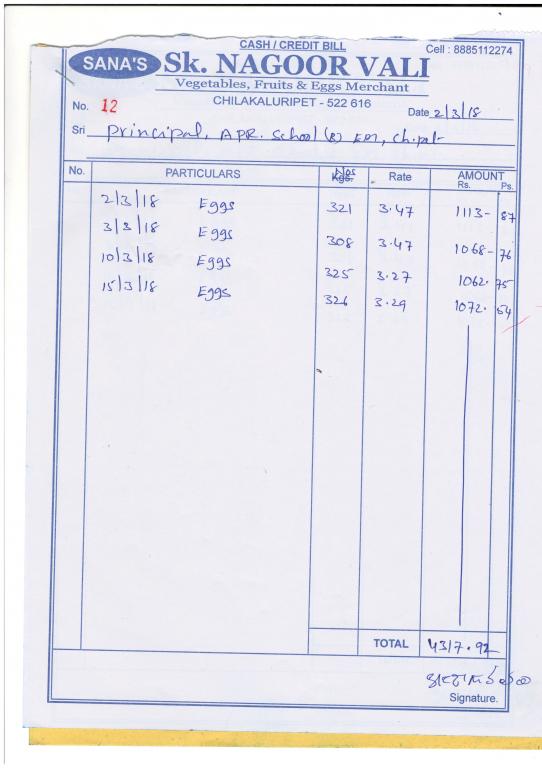 CASH / CREDIT BILL
Cell : 8885112274
SANA'S Sk. NAGOOR VALI
Vegetables, Fruits & Eggs Merchant
CHILAKALURIPET - 522 616
No. 12
Date 2/3/18
Sri Principal, APR. School (B) EM, Ch.pet
No. PARTICULARS Nos Kgs. Rate AMOUNT
Rs. Ps.
2/3/18 Eggs 321 3.47 1113- 87
3/3/18 Eggs 308 3.47 1068- 76
10/3/18 Eggs 325 3.27 1062. 75
15/3/18 Eggs 326 3.29 1072. 54
TOTAL 4317.92
Signature.